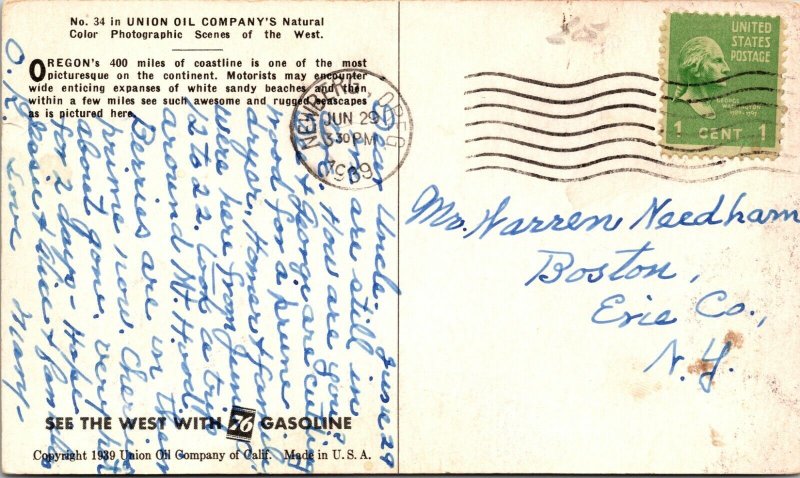 No. 34 in UNION OIL COMPANY'S Natural
Color Photographic Scenes of the West.
OREGON's 400 miles of coastline is one of the most
picturesque on the continent. Motorists may encounter
wide enticing expanses of white sandy beaches and then,
within a few miles see such awesome and rugged seascapes
as is pictured here.
June 29
Dear Uncle,
are still in
How are you?
& George are cutting
wood for a prune
dryer. Homer & family
were here from June
12 to 22. Took a trip
around Mt. Hood.
Berries are in their
prime now. Cherries
about gone. Very hot
for 2 days - Hope
Rosie & Alice & families
O.K.
Love
Mary-
SEE THE WEST WITH 76 GASOLINE
Copyright 1939 Union Oil Company of Calif. Made in U.S.A.
NEWBERG, OREG
JUN 29
3 30 PM
1939
UNITED
STATES
POSTAGE
GEORGE
WASHINGTON
1 CENT 1
Mr. Warren Needham
Boston,
Erie Co.,
N.Y.